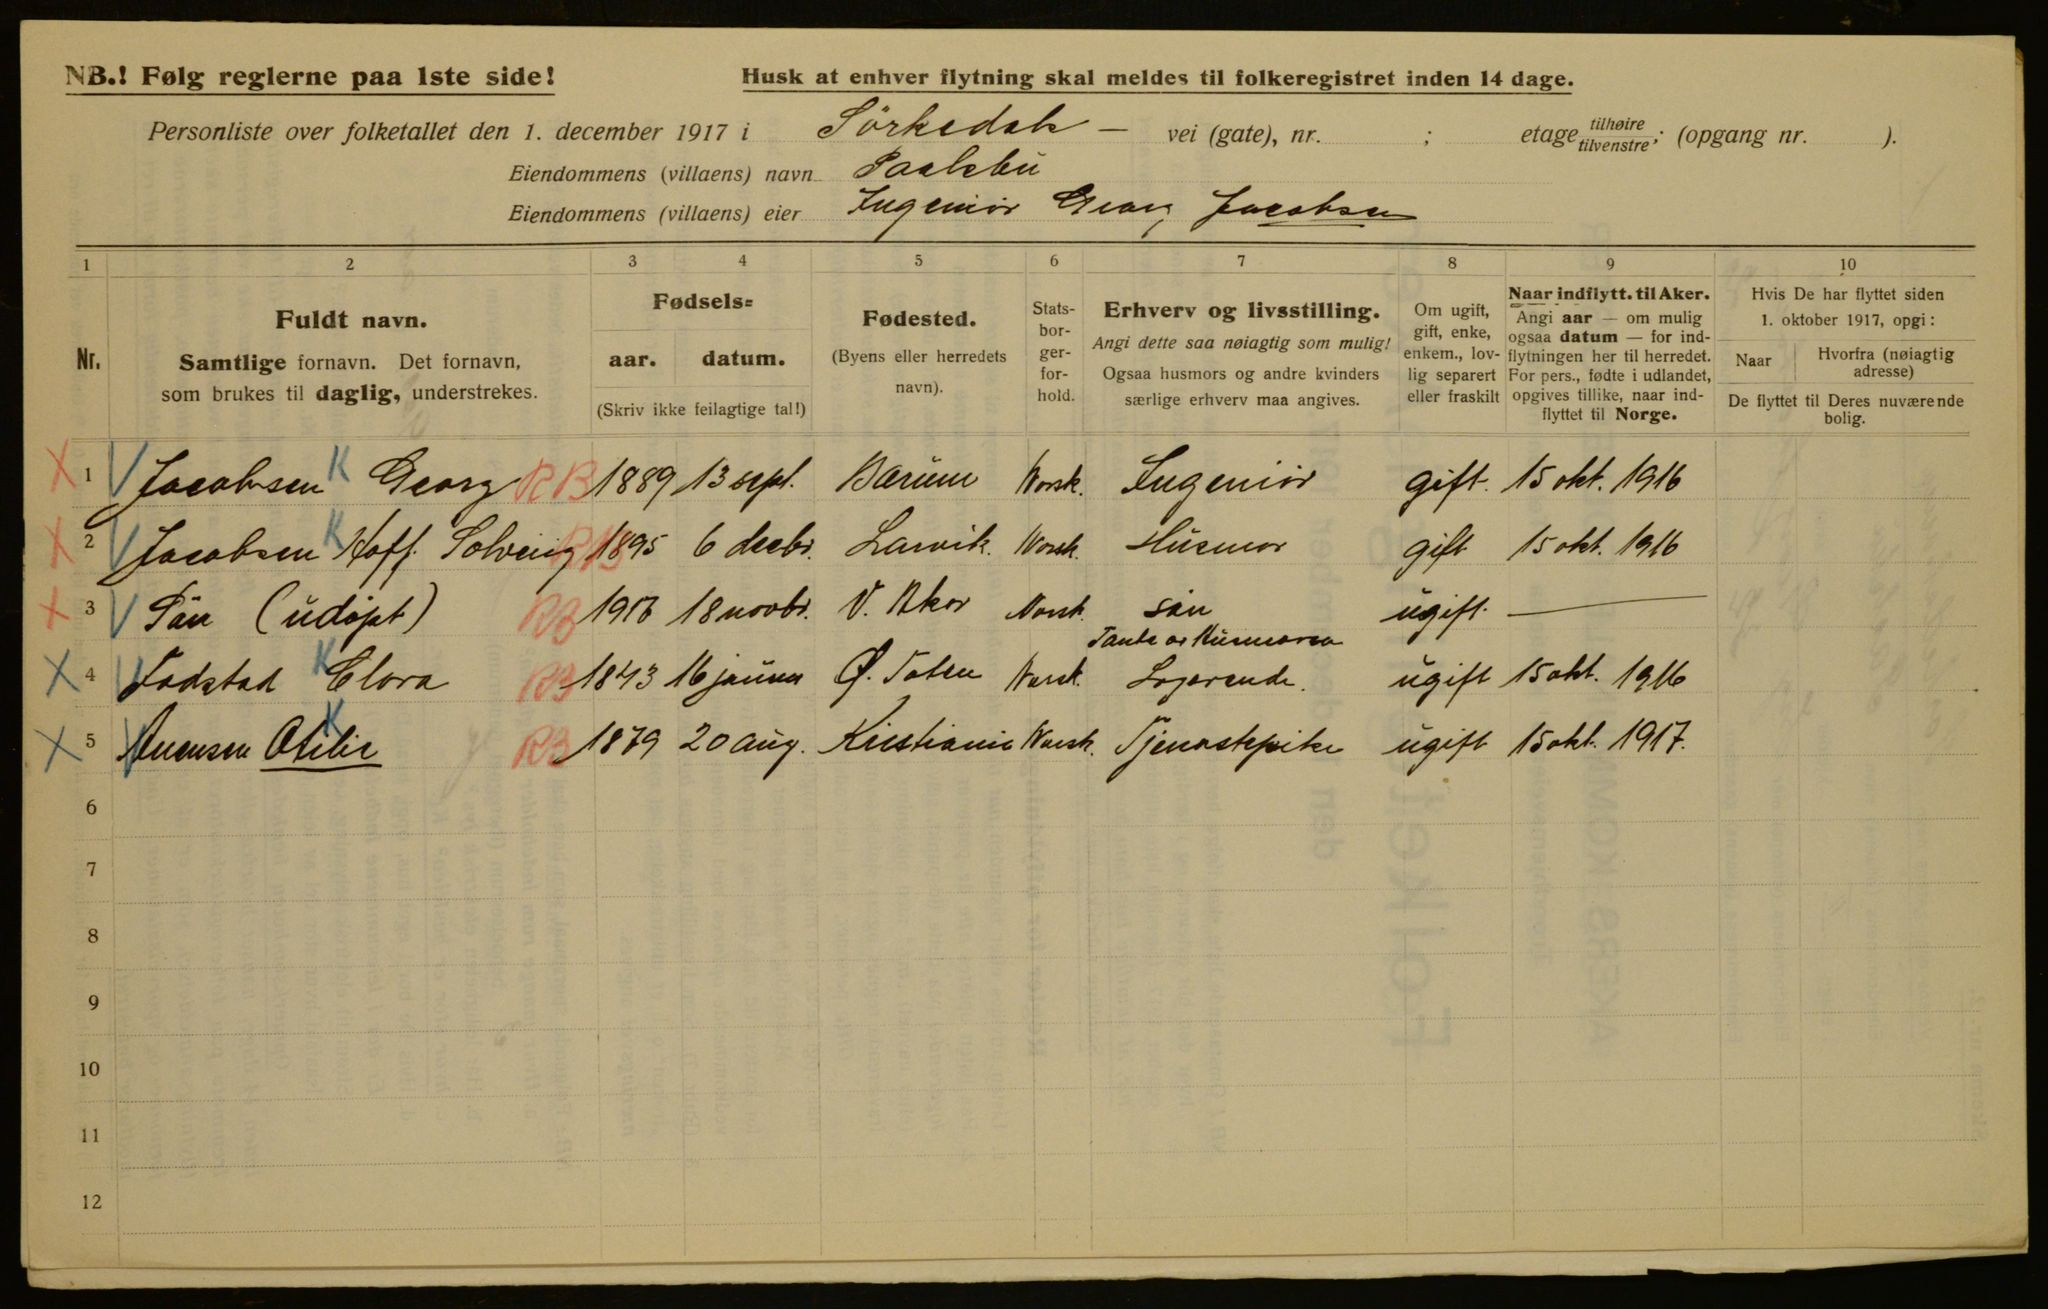 NB.! Følg reglerne paa 1ste side!
Husk at enhver flytning skal meldes til folkeregistret inden 14 dage.
Personliste over folketallet den 1. december 1917 i Sörkedals — vei (gate), nr. ; etage tilhøire tilvenstre; (opgang nr. ).
Eiendommens (villaens) navn Paalsbu
Eiendommens (villaens) eier Ingeniör Georg Jacobsen
1 2 3 4 5 6 7 8 9 10
Nr.
Fuldt navn.
Samtlige fornavn. Det fornavn,
som brukes til daglig, understrekes.
Fødsels=
aar. datum.
(Skriv ikke feilagtige tal!)
Fødested.
(Byens eller herredets
navn).
Stats-
bor-
ger-
for-
hold.
Erhverv og livsstilling.
Angi dette saa nøiagtig som mulig!
Ogsaa husmors og andre kvinders
særlige erhverv maa angives.
Om ugift,
gift, enke,
enkem., lov-
lig separert
eller fraskilt
Naar indflytt. til Aker.
Angi aar — om mulig
ogsaa datum — for ind-
flytningen her til herredet.
For pers., fødte i udlandet,
opgives tillike, naar ind-
flyttet til Norge.
Hvis De har flyttet siden
1. oktober 1917, opgi:
Naar
Hvorfra (nøiagtig
adresse)
De flyttet til Deres nuværende
bolig.
X 1 V Jacobsen K Georg RB 1889 13 sept. Bærum Norsk. Ingeniör gift. 15 okt. 1916
X 2 V Jacobsen K Hoff. Solveig RB 1895 6 decbr. Larvik. Norsk. Husmor gift 15 okt. 1916
X 3 V Sön (udöpt) RB 1917 18 novbr. V. Aker Norsk sön ugift. —
Tante av Husmoren
X 4 V Fodstad K Clara RB 1843 16 januar Ø. Toten Norsk. Logerende. ugift 15 okt. 1916
X 5 V K Otilie RB 1879 20 aug. Kristiania Norsk. Tjenestepike ugift 15 okt. 1917.
6
7
8
9
10
11
12